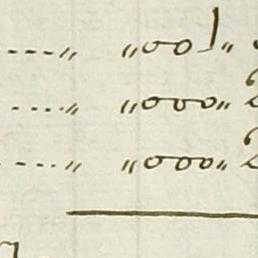 ----„ „001„
....„ „000„ 2
....„ „000„ 2